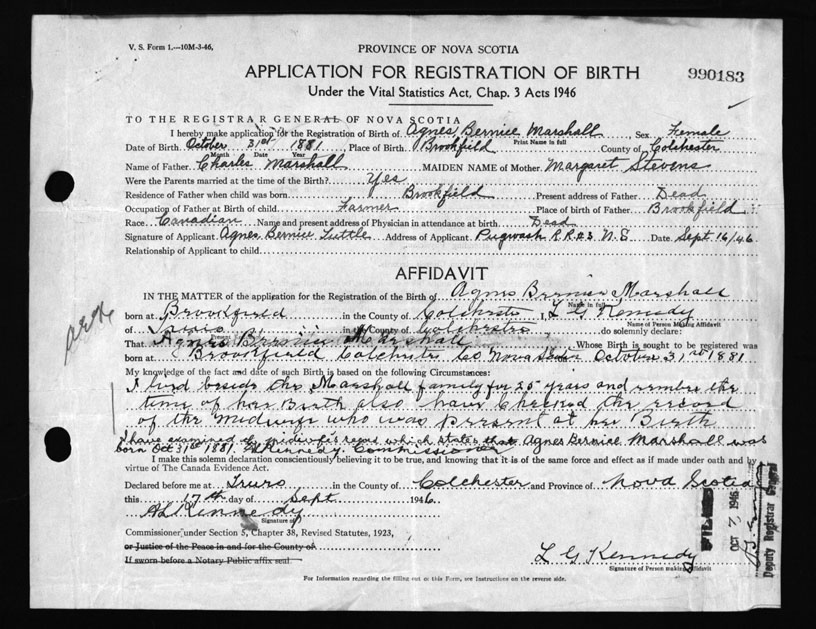 V. S. Form 1.—10M-3-46.
PROVINCE OF NOVA SCOTIA
APPLICATION FOR REGISTRATION OF BIRTH
990183
Under the Vital Statistics Act, Chap. 3 Acts 1946
TO THE REGISTRAR GENERAL OF NOVA SCOTIA
I hereby make application for the Registration of Birth of Agnes Bernice Marshall, Sex Female
Print Name in full
Date of Birth October 31st 1881, Place of Birth Brookfield County of Colchester
Month Date Year
Name of Father Charles Marshall MAIDEN NAME of Mother Margaret Stevens
Were the Parents married at the time of the Birth? Yes
Residence of Father when child was born Brookfield Present address of Father Dead
Occupation of Father at Birth of child Farmer Place of birth of Father Brookfield
Race Canadian Name and present address of Physician in attendance at birth Dead
Signature of Applicant Agnes Bernice Tuttle Address of Applicant Pugwash R.R#3 N.S Date Sept 16/46
Relationship of Applicant to child
AFFIDAVIT
IN THE MATTER of the application for the Registration of the Birth of Agnes Bernice Marshall
Name in full
born at Brookfield in the County of Colchester I, L G Kennedy
Name of Person Making Affidavit
of Truro in the County of Colchester do solemnly declare:
That Agnes Bernice Marshall Whose Birth is sought to be registered was
born at Brookfield Colchester Co Nova Scotia October 31st 1881
My knowledge of the fact and date of such Birth is based on the following Circumstances:
I lived beside the Marshall family for 25 years and remember the
time of her Birth also have checked the record
of the Midwife who was present at her Birth
I have examined the midwife's record which states that Agnes Bernice Marshall was
born Oct 31st 1881. Kennedy. Commissioner
I make this solemn declaration conscientiously believing it to be true, and knowing that it is of the same force and effect as if made under oath and by
virtue of The Canada Evidence Act.
Declared before me at Truro in the County of Colchester and Province of Nova Scotia
this 17th day of Sept 1946
Kennedy
Signature of
Commissioner under Section 5, Chapter 38, Revised Statutes, 1923,
or Justice of the Peace in and for the County of
If sworn before a Notary Public affix seal.
L G Kennedy
Signature of Person making Affidavit
For Information regarding the filling out of this Form, see Instructions on the reverse side.
FILED
OCT 7 1946
Deputy Registrar General